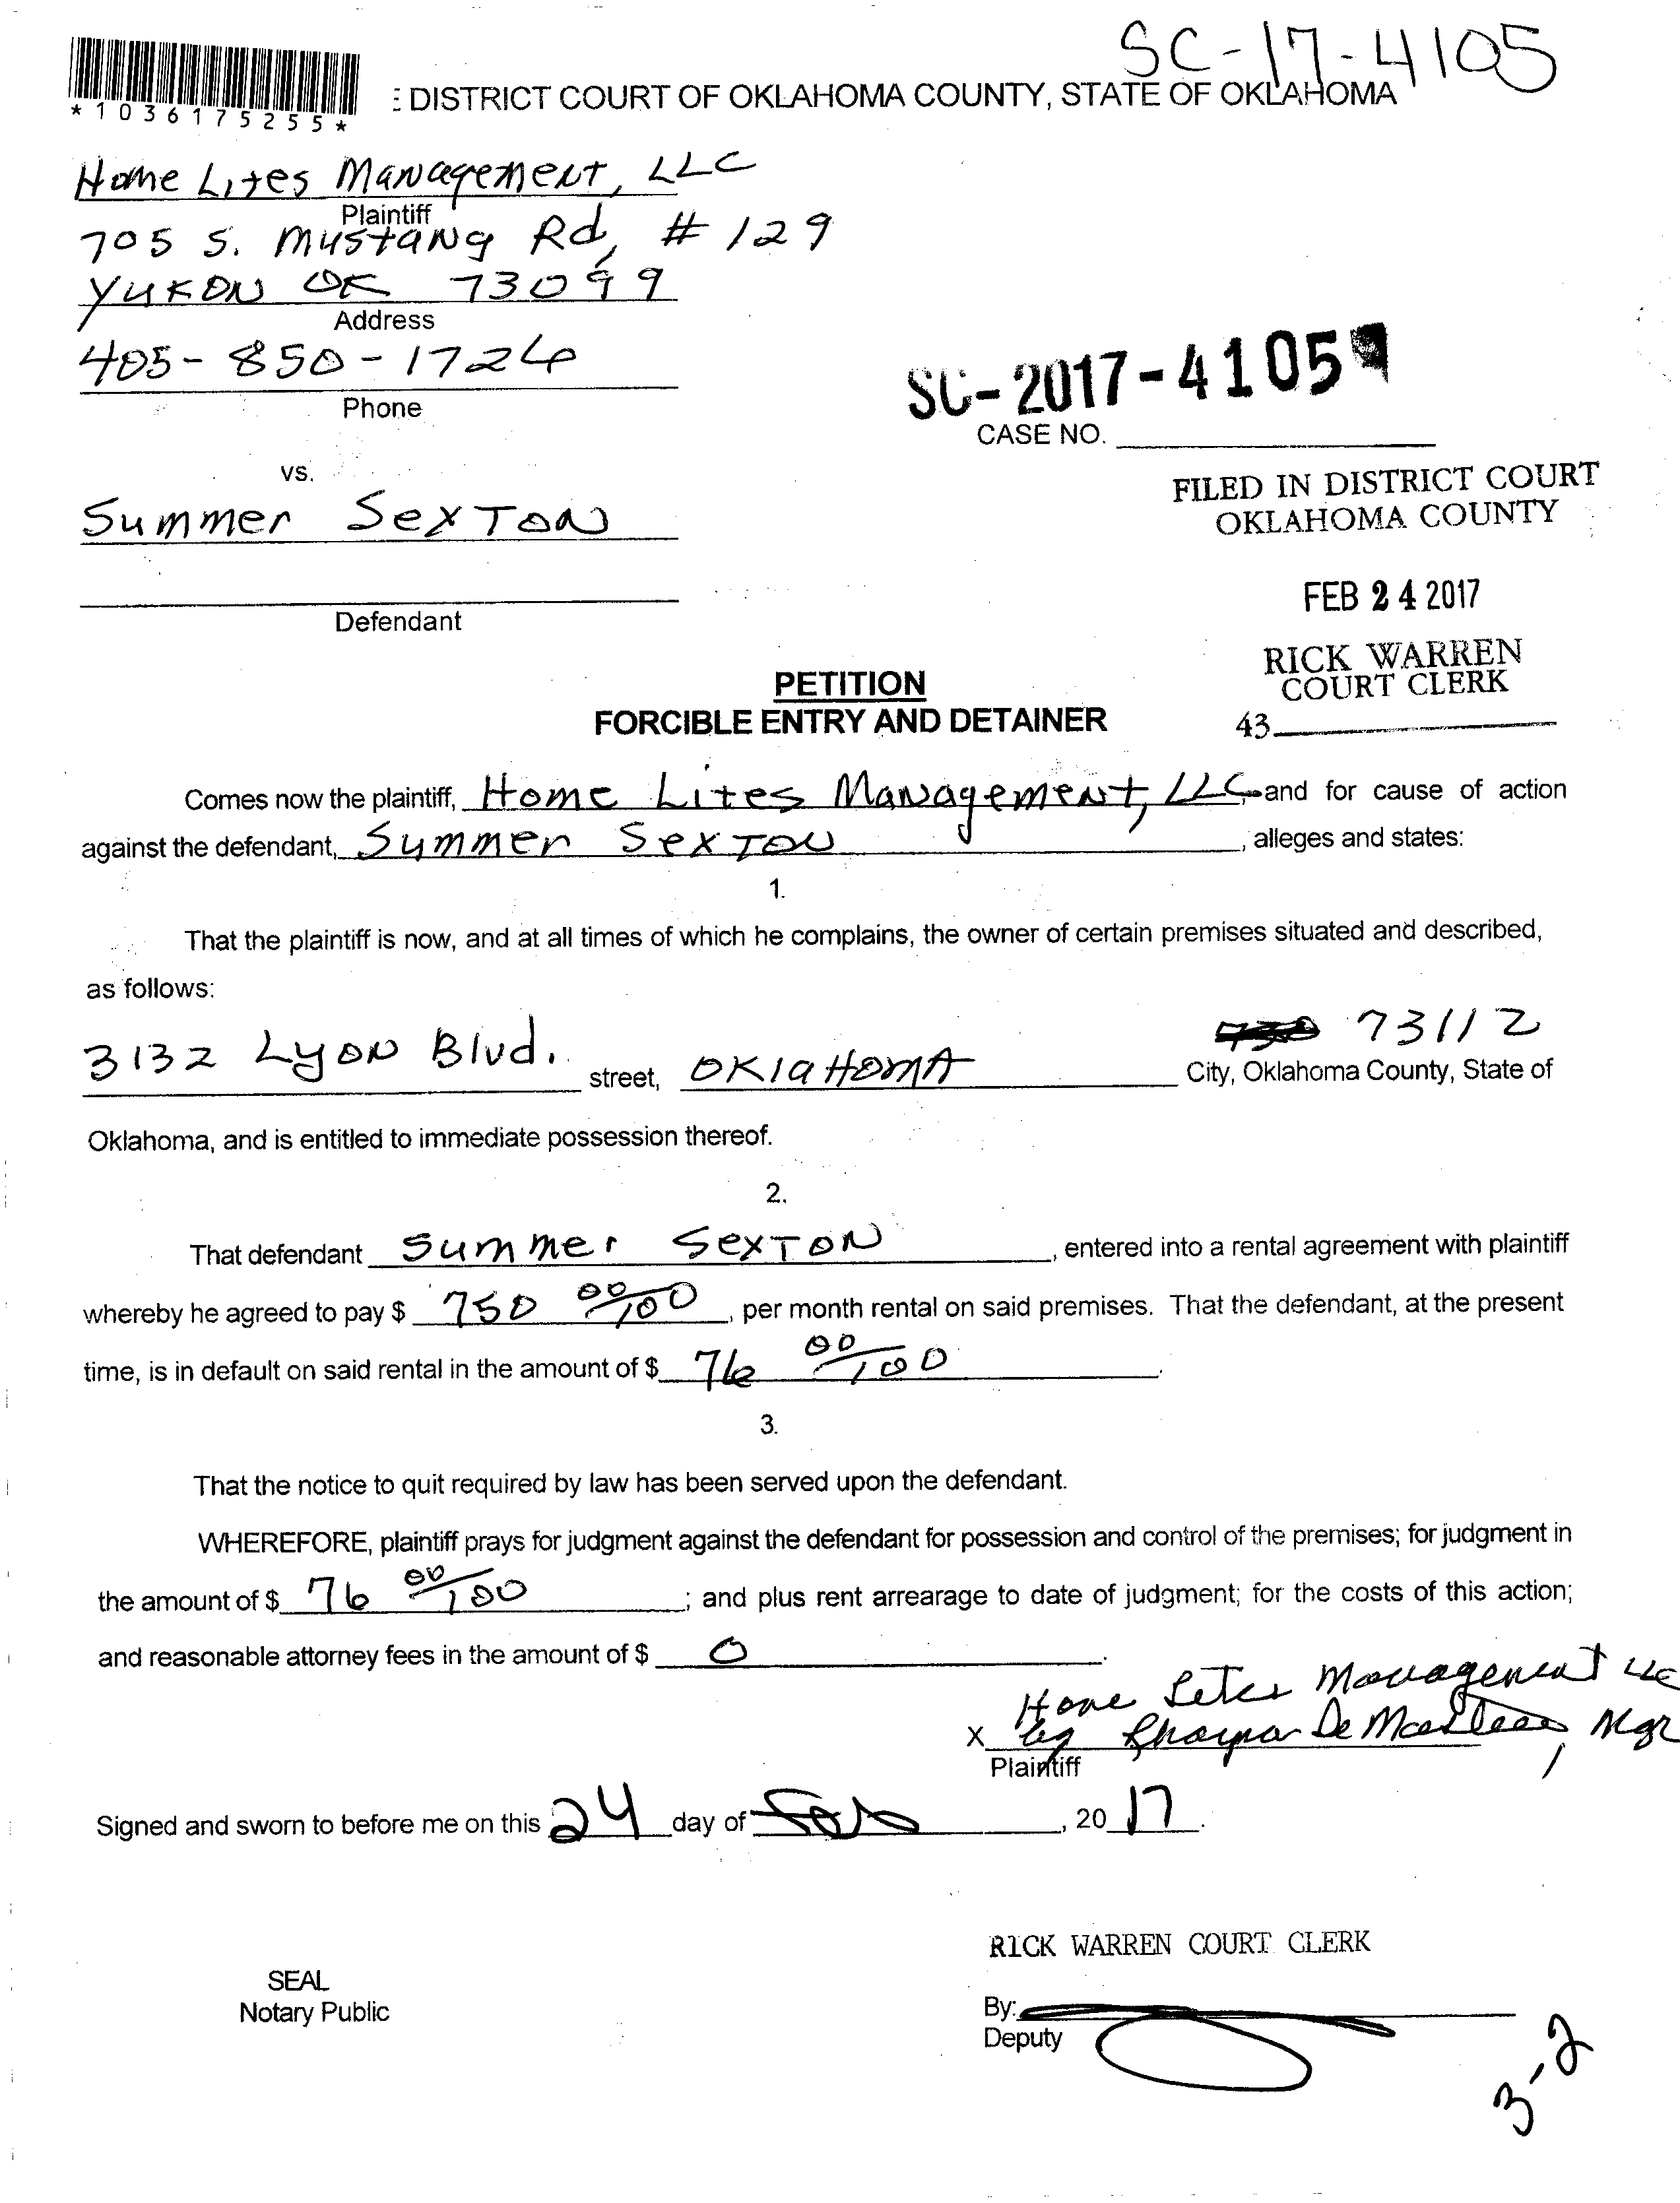 SC-17-4105
*1036175255*
DISTRICT COURT OF OKLAHOMA COUNTY, STATE OF OKLAHOMA
Home Lites Management, LLC
Plaintiff
705 S. Mustang Rd, # 129
Yukon OK 73099
Address
405-850-1726
Phone
SC-2017-4105
CASE NO.
vs.
FILED IN DISTRICT COURT
OKLAHOMA COUNTY
Summer Sexton
FEB 24 2017
Defendant
RICK WARREN
COURT CLERK
43
PETITION
FORCIBLE ENTRY AND DETAINER
Comes now the plaintiff, Home Lites Management, LLC, and for cause of action
against the defendant, Summer Sexton, alleges and states:
1.
That the plaintiff is now, and at all times of which he complains, the owner of certain premises situated and described,
as follows:
73112
3132 Lyon Blvd. street, Oklahoma City, Oklahoma County, State of
Oklahoma, and is entitled to immediate possession thereof.
2.
That defendant Summer Sexton, entered into a rental agreement with plaintiff
whereby he agreed to pay $ 750 00/100, per month rental on said premises. That the defendant, at the present
time, is in default on said rental in the amount of $ 76 00/100.
3.
That the notice to quit required by law has been served upon the defendant.
WHEREFORE, plaintiff prays for judgment against the defendant for possession and control of the premises; for judgment in
the amount of $ 76 00/100; and plus rent arrearage to date of judgment; for the costs of this action;
and reasonable attorney fees in the amount of $ 0.
Home Lites Management LLC
X by De Mgr
Plaintiff
Signed and sworn to before me on this 24 day of Feb, 2017.
RICK WARREN COURT CLERK
SEAL
Notary Public
By:
Deputy
3-2